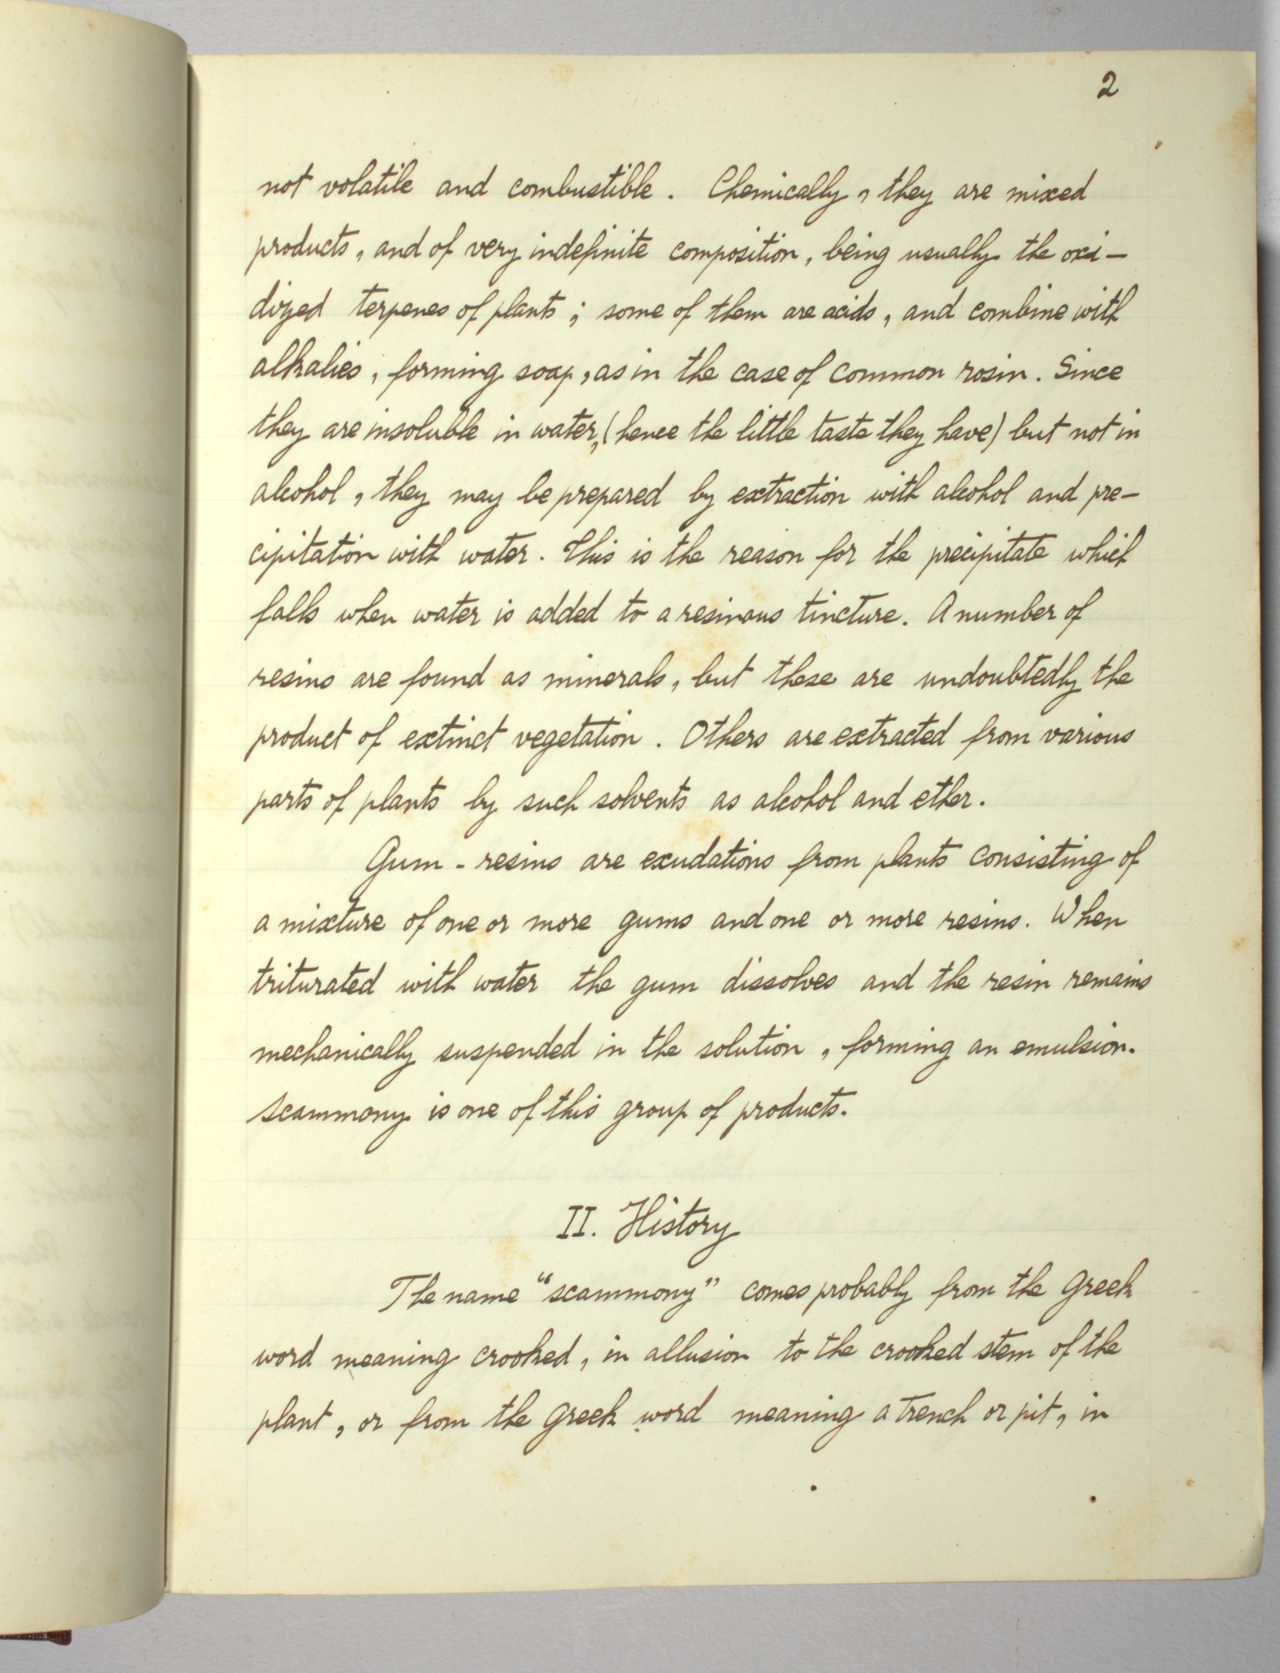 2
not volatile and combustible. Chemically, they are mixed
products, and of very indefinite composition, being usually the oxi-
dized terpenes of plants; some of them are acids, and combine with
alkalies, forming soap, as in the case of common rosin. Since
they are insoluble in water, (hence the little taste they have) but not in
alcohol, they may be prepared by extraction with alcohol and pre-
cipitation with water. This is the reason for the precipitate which
falls when water is added to a resinous tincture. A number of
resins are found as minerals, but these are undoubtedly the
product of extinct vegetation. Others are extracted from various
parts of plants by such solvents as alcohol and ether.
Gum-resins are exudations from plants consisting of
a mixture of one or more gums and one or more resins. When
triturated with water the gum dissolves and the resin remains
mechanically suspended in the solution, forming an emulsion.
Scammony is one of this group of products.
II. History
The name "scammony" comes probably from the Greek
word meaning crooked, in allusion to the crooked stem of the
plant, or from the Greek word meaning a trench or pit, in